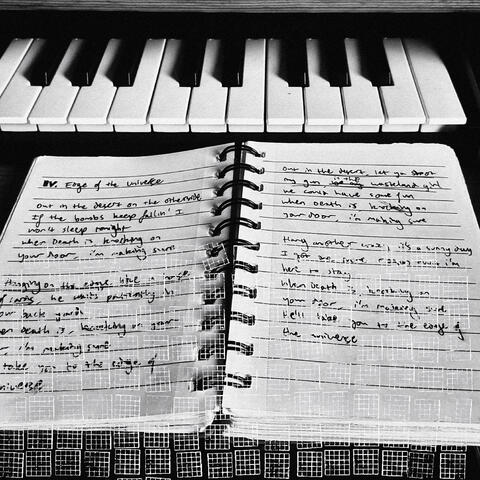 IV. Edge of the Universe
Out in the desert on the otherside
If the bombs keep fallin' I
won't sleep tonight
When Death is knocking on
your door, i'm making sure
Hanging on the edge, like a
of cards, he waits patiently in
our back yards
en death is knocking on your
r, i'm making sure
take you to the edge of
universe
Out in the desert, let ya shoot
my gun in the wasteland girl
We could have some fun
When Death is knocking on
your door, i'm making sure
Hang another it's a sunny day
I got the
here to stay
When Death is knocking on
your door, i'm making sure
He'll take you to the edge of
the universe